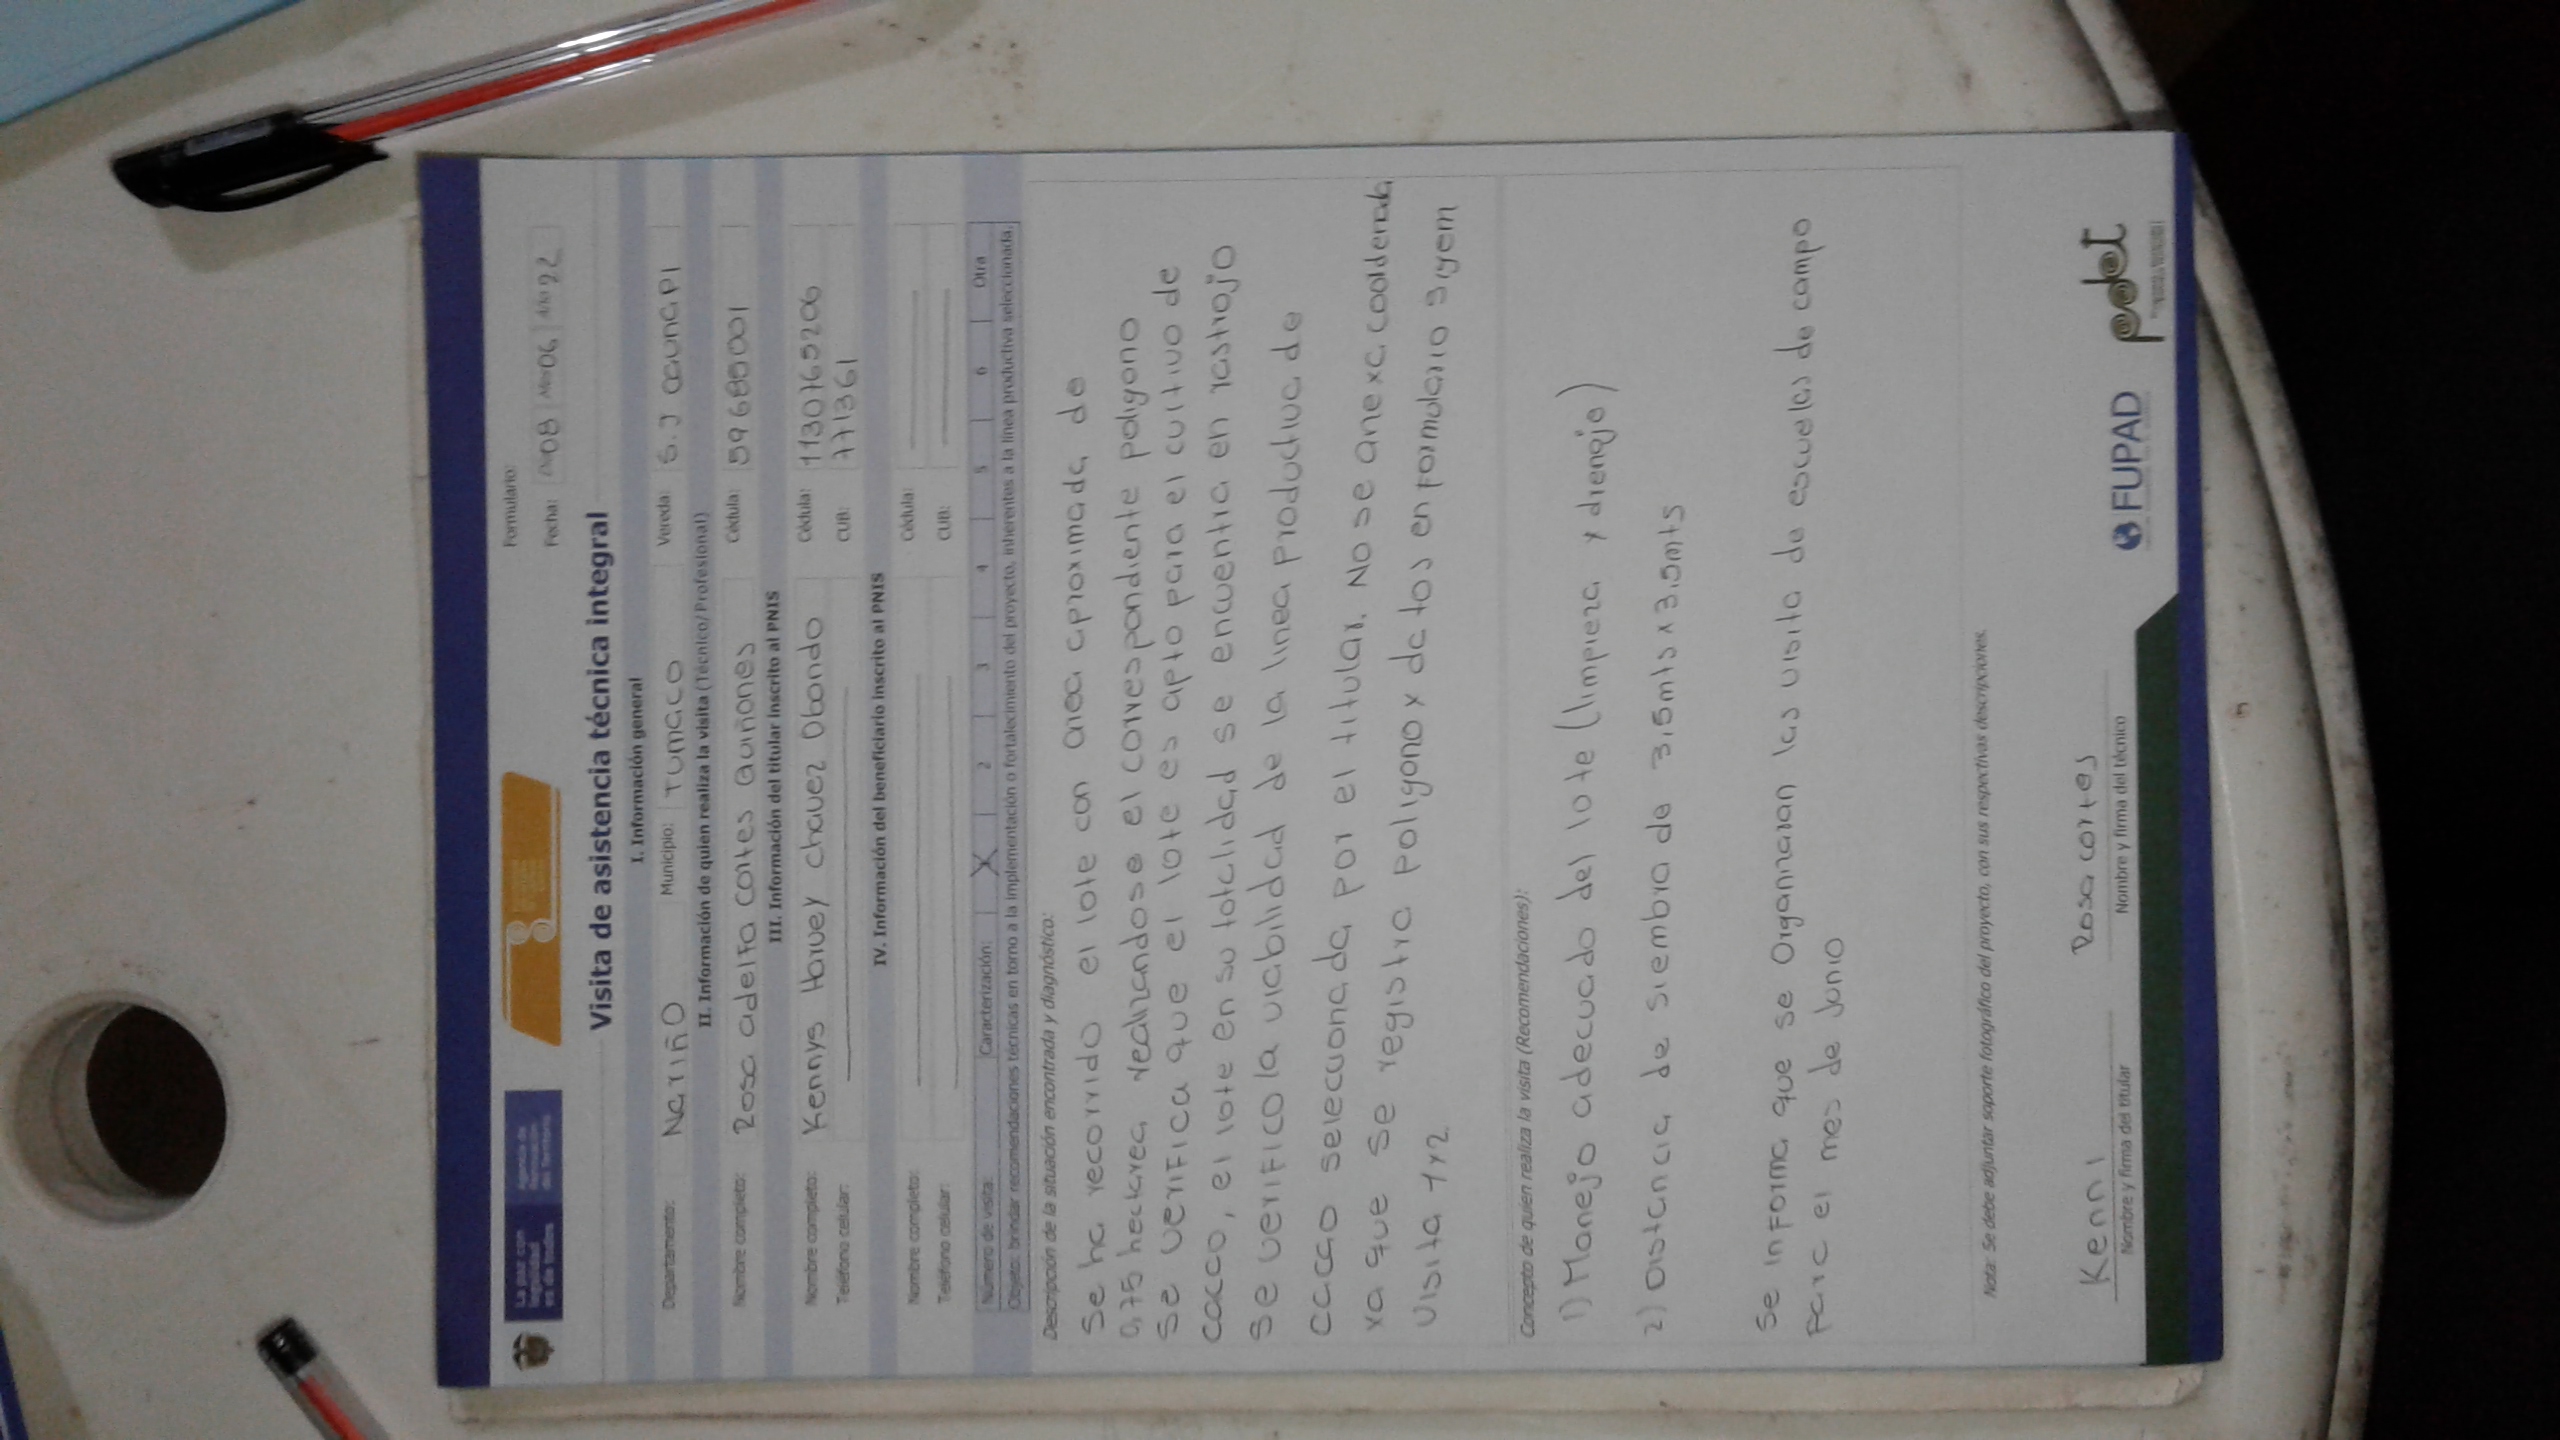 La paz con
legalidad
es de todos
Agencia de
Renovación
del Territorio
Formulario:
Fecha: Día 08 Mes 06 Año 22
Visita de asistencia técnica integral
I. Información general
Departamento: Nariño Municipio: Tumaco Vereda: S. J caunapi
II. Información de quien realiza la visita (Técnico/Profesional)
Nombre completo: Rosa adelfa cortes quiñones Cédula: 59685001
III. Información del titular inscrito al PNIS
Nombre completo: Kennys Harvey chavez Obando Cédula: 1130765206
Teléfono celular: CUB: 7713661
IV. Información del beneficiario inscrito al PNIS
Nombre completo: Cédula:
Teléfono celular: CUB:
Número de visita: Caracterización: X 2 3 4 5 6 Otra
Objeto: brindar recomendaciones técnicas en torno a la implementación o fortalecimiento del proyecto, inherentes a la línea productiva seleccionada.
Descripción de la situación encontrada y diagnóstico:
Se ha recorrido el lote con area aproximada de
0,75 hectarea realizandose el correspondiente poligono
Se verifica que el lote es apto para el cultivo de
cacao, el lote en su totalidad se encuentra en rastrojo
Se verifico la viabilidad de la linea productiva de
cacao seleccionada por el titular. No se anexa coordenada
ya que se registra poligono y datos en formulario sygem
visita 1 y 2
Concepto de quien realiza la visita (Recomendaciones):
1) Manejo adecuado del lote (limpieza y drenaje)
2) Distancia de siembra de 3,5mts x 3,5mts
Se informa que se Organizaran las visita de escuelas de campo
para el mes de Junio
Nota: Se debe adjuntar soporte fotográfico del proyecto, con sus respectivas descripciones.
Kenni Rosa cortes
Nombre y firma del titular Nombre y firma del técnico
FUPAD
pdet